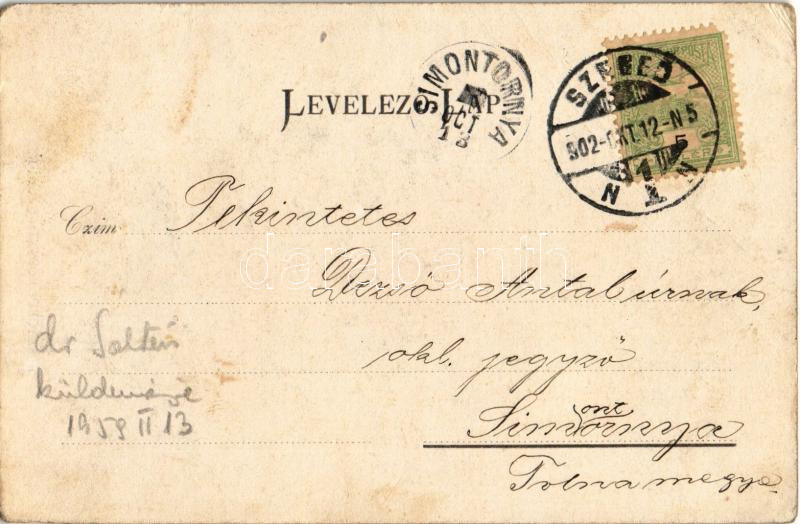 LEVELEZŐ-LAP.
SIMONTORNYA
OCT
13
SZEGED
902-OKT.12-N5
Czim
Tekintetes
Dezső Antal úrnak,
okl. jegyző
ont
Simornya
Tolna megye
dr
küldeménye
1959 II 13
darabanth